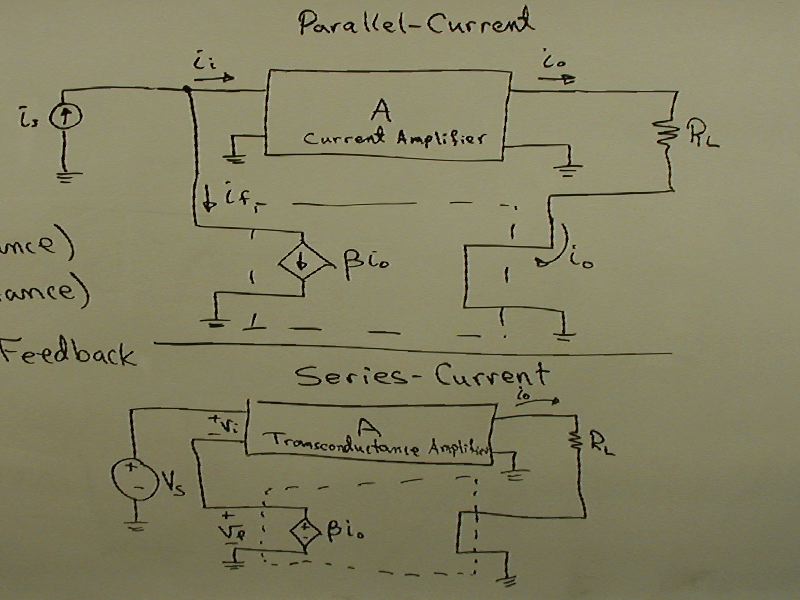 Parallel-Current
ii
io
is
A
Current Amplifier
RL
if
βio
io
Feedback
Series-Current
io
+
vi
-
A
Transconductance Amplifier
RL
+
-
Vs
+
Vf
-
+
-
βio